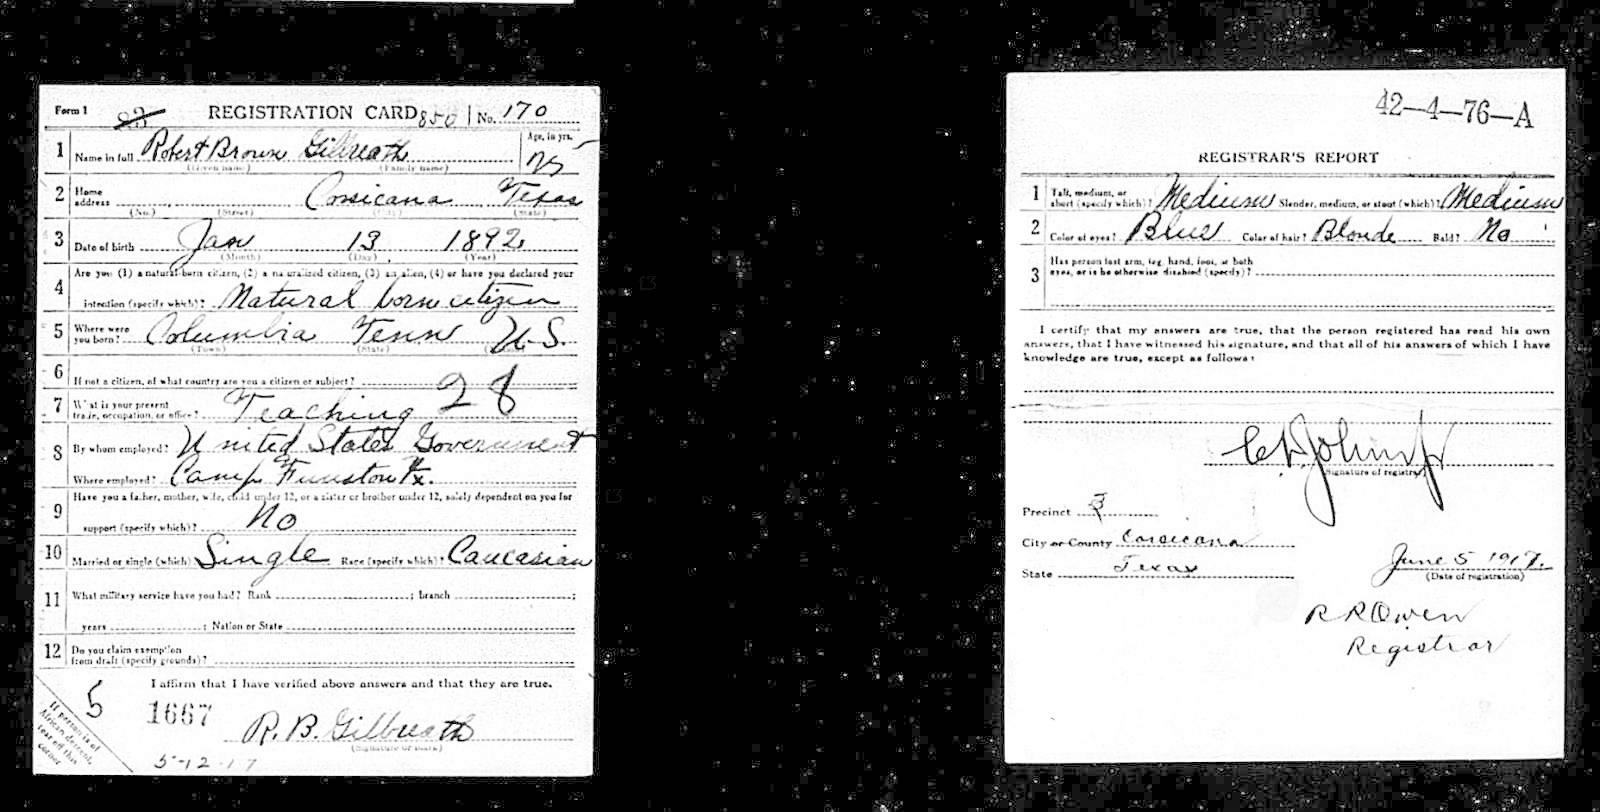 Form 1 83 REGISTRATION CARD 850 No. 170
1 Name in full Robert Brown Gilbreath Age, in yrs. 25
(Given name) (Family name)
2 Home address Corsicana Texas
(No.) (Street) (City) (State)
3 Date of birth Jan 13 1892
(Month) (Day) (Year)
4 Are you (1) a natural-born citizen, (2) a naturalized citizen, (3) an alien, (4) or have you declared your
intention (specify which)? Natural born citizen
5 Where were you born? Columbia Tenn U.S.
(Town) (State)
6 If not a citizen, of what country are you a citizen or subject?
7 What is your present trade, occupation, or office? Teaching 28
8 By whom employed? United States Government
Where employed? Camp Funston
9 Have you a father, mother, wife, child under 12, or a sister or brother under 12, solely dependent on you for
support (specify which)? No
10 Married or single (which)? Single Race (specify which)? Caucasian
11 What military service have you had? Rank ; branch ;
years ; Nation or State
12 Do you claim exemption from draft (specify grounds)?
I affirm that I have verified above answers and that they are true.
5 1667
R. B. Gilbreath
5-12-17
If person is of
African descent,
tear off this
corner
42-4-76-A
REGISTRAR'S REPORT
1 Tall, medium, or short (specify which)? Medium Slender, medium, or stout (which)? Medium
2 Color of eyes? Blue Color of hair? Blonde Bald? No
3 Has person lost arm, leg, hand, foot, or both
eyes, or is he otherwise disabled (specify)?
I certify that my answers are true, that the person registered has read his own
answers, that I have witnessed his signature, and that all of his answers of which I have
knowledge are true, except as follows:
(Signature of registrar)
Precinct 3
City or County Corsicana
State Texas
June 5 1917.
(Date of registration)
R R Owen
Registrar